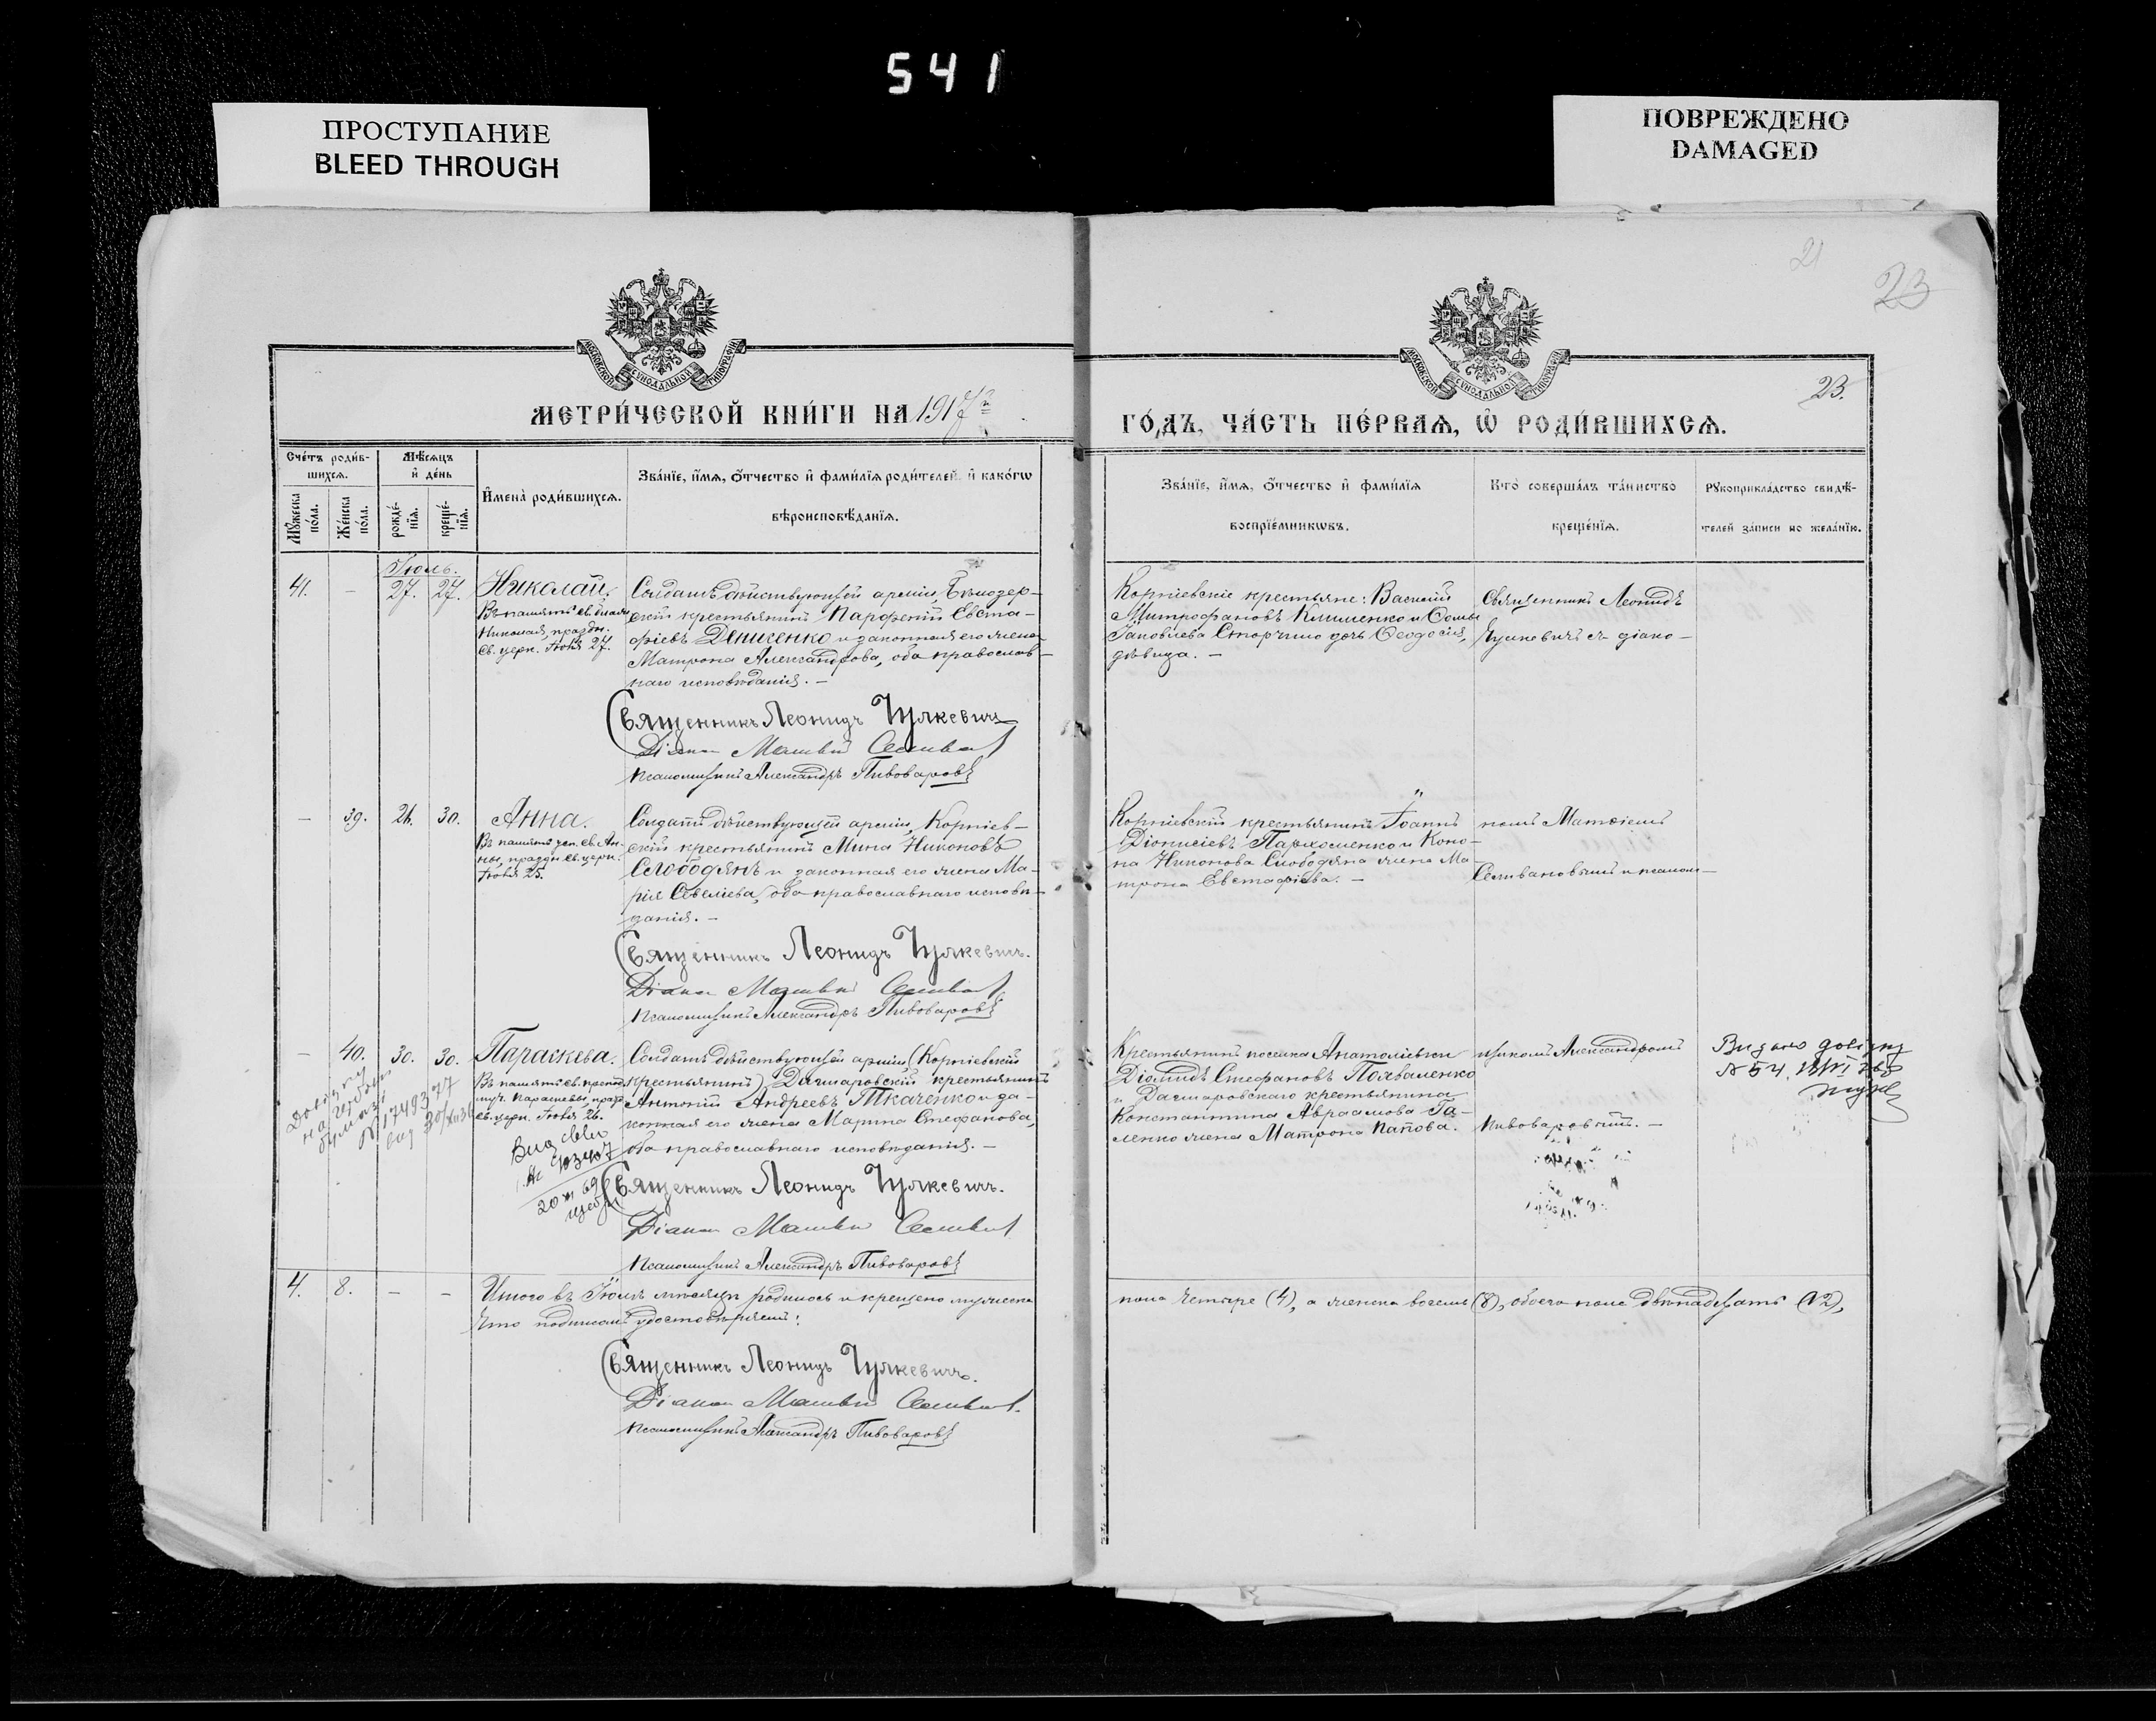 541
ПРОСТУПАНИЕ
BLEED THROUGH
ПОВРЕЖДЕНО
DAMAGED
21
23
23.
МОСКОВСКОЙ СУНОДАЛЬНОЙ ТИПОГРАФІИ
МОСКОВСКОЙ СУНОДАЛЬНОЙ ТИПОГРАФІИ
МЕТРИ́ЧЕСКОЙ КНИ́ГИ НА 1917й
ГО́ДЪ, ЧА́СТЬ ПЕ́РВАѦ, Ѽ РОДИ́ВШИХСѦ.
Сче́тъ роди́в-
шихсѧ.
Мꙋ́жеска
по́ла.
Же́нска
по́ла.
Мѣ́сѧцъ
и҆ де́нь
рожде́-
нїѧ.
креще́-
нїѧ.
И҆мена̀ роди́вшихсѧ.
Зва́нїе, и҆́мѧ, ѻ҆́тчество и҆ фами́лїѧ роди́телей и҆ како́гѡ
вѣроисповѣ́данїѧ.
Зва́нїе, и҆́мѧ, ѻ҆́тчество и҆ фами́лїѧ
воспрїе́мникѡвъ.
Кто̀ соверша́лъ та́инство
креще́нїѧ.
Рꙋкоприкла́дство свидѣ́-
телей за́писи по жела́нїю.
Іюль.
41. – 27. 27. Николай.
Въ память св. блаж.
Николая, праздн.
св. церк. Іюля 27.
Солдатъ дѣйствующей арміи,
скій крестьянинъ Парфеній Евста-
фіевъ Денисенко и законная его жена
Матрона Александрова, оба православ-
наго исповѣданія. –
Священникъ Леонидъ Чулкевичъ
Діаконъ Матвѣй
Псаломщикъ Александръ Пивоваровъ
Корніевскіе крестьяне: Василій
Митрофановъ Клименко и Ѳомы
Іаковлева дочь Ѳеодосія,
дѣвица. –
Священникъ Леонидъ
Чулкевичъ съ діако-
– 39. 26. 30. Анна.
Въ память усп. св. Ан-
ны, праздн. св. церк.
Іюля 25.
Солдатъ дѣйствующей арміи, Корніев-
скій крестьянинъ Мина Никоновъ
Слободянъ и законная его жена Ма-
рія Савеліева, оба православнаго исповѣ-
данія. –
Священникъ Леонидъ Чулкевичъ.
Діаконъ Матвѣй
Псаломщикъ Александръ Пивоваровъ
Корніевскій крестьянинъ Іоаннъ
Діонисіевъ Пархоменко и Коно-
на Никонова Слободяна жена Ма-
трона Евстафіева. –
номъ Матѳіемъ
Селивановымъ и псалом-
– 40. 30. 30. Параскева.
Въ память св. препод.
муч. Параскевы, празд.
св. церк. Іюля 26.
Солдатъ дѣйствующей арміи (Корніевскій
крестьянинъ) Дагмаровскій крестьянинъ
Антоній Андреевъ Ткаченко и за-
конная его жена Марина Стефанова,
оба православнаго исповѣданія. –
Довідку
на гербов
бумазі
№ 1749377
вид 30/XII 36
№ 103407
20 XI 69
Священникъ Леонидъ Чулкевичъ.
Діаконъ Матвѣй
Псаломщикъ Александръ Пивоваровъ
Крестьянинъ поселка Анатоліевки
Діомидъ Стефановъ Похваленко
и Дагмаровскаго крестьянина
Константина Авраамова Га-
ленко жена Матрона Карпова.
щикомъ Александромъ
Пивоваровымъ. –
Видано довідку
№ 54.
4. 8. – – Итого въ Іюлѣ мѣсяцѣ родилось и крещено мужеска
пола четыре (4), а женска восемь (8), обоего пола двѣнадцать (12),
Что подписомъ удостовѣряемъ:
Священникъ Леонидъ Чулкевичъ.
Діаконъ Матвѣй
Псаломщикъ Александръ Пивоваровъ